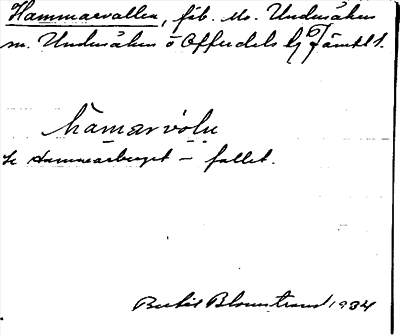 Hammarvallen, fäb. Ms. Undersåkers
m. Undersåkers o Offerdals tg Jämtl l.
hämarvòln
Se Hammarberget – fallet.
Bertil Blomstrand 1934